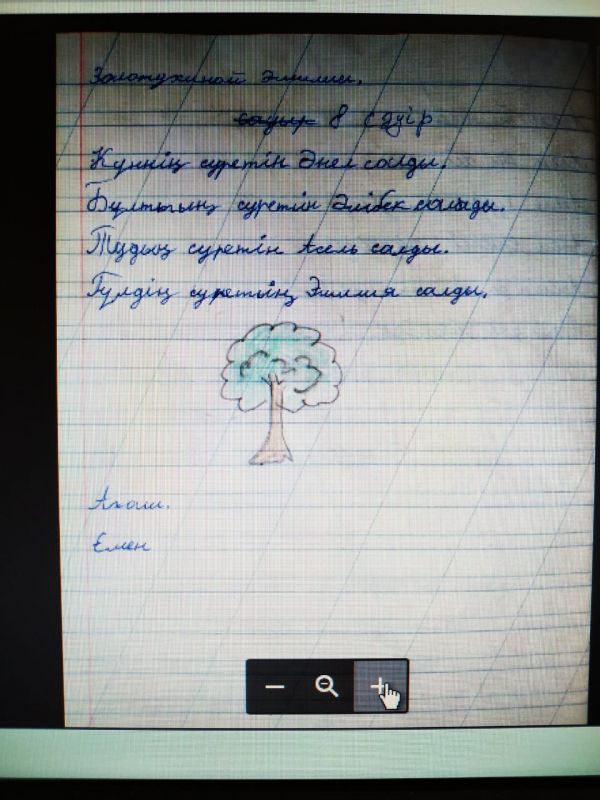 Золотухиной Эмилии.
садыр 8 сәуір
Күннің суретін Әнел салды.
Бұлтының суретін Әлібек салады.
Тудың суретін Асель салды.
Гүлдің суретың Эмилия салды.
Ахаш.
Емен